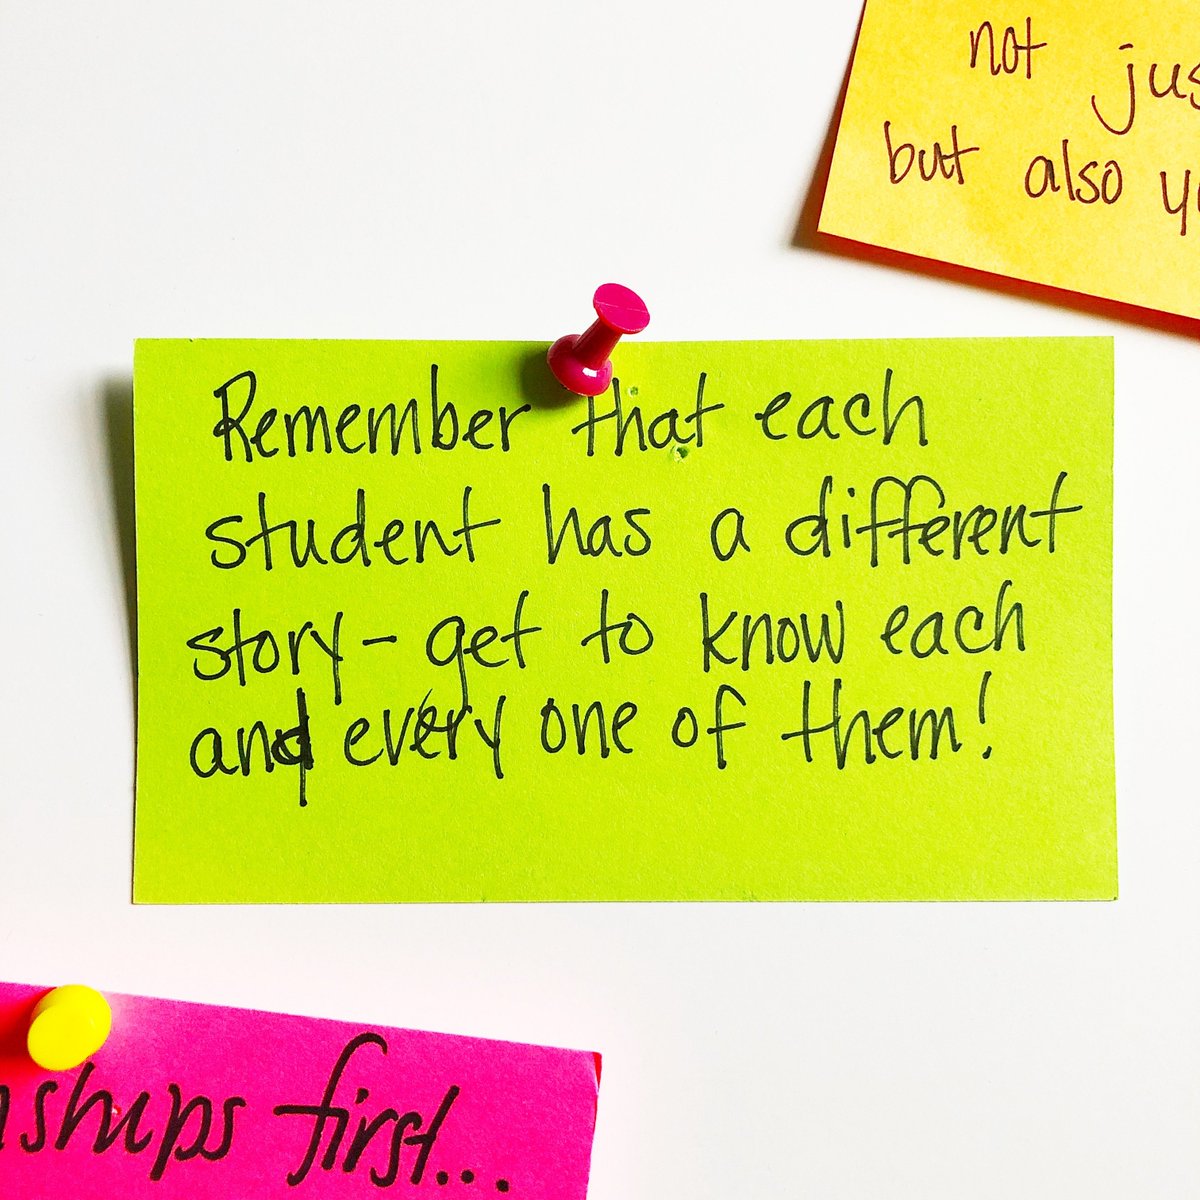 not
but also
Remember that each
student has a different
story - get to know each
and every one of them!
first...